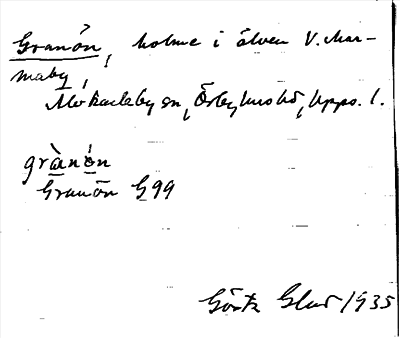 Granön, holme i älven V. Mar-
maby,
Älvkarleby sn, Örbyhus hd, Upps. l.
grànö́n
Granön G 99
Gösta 1935